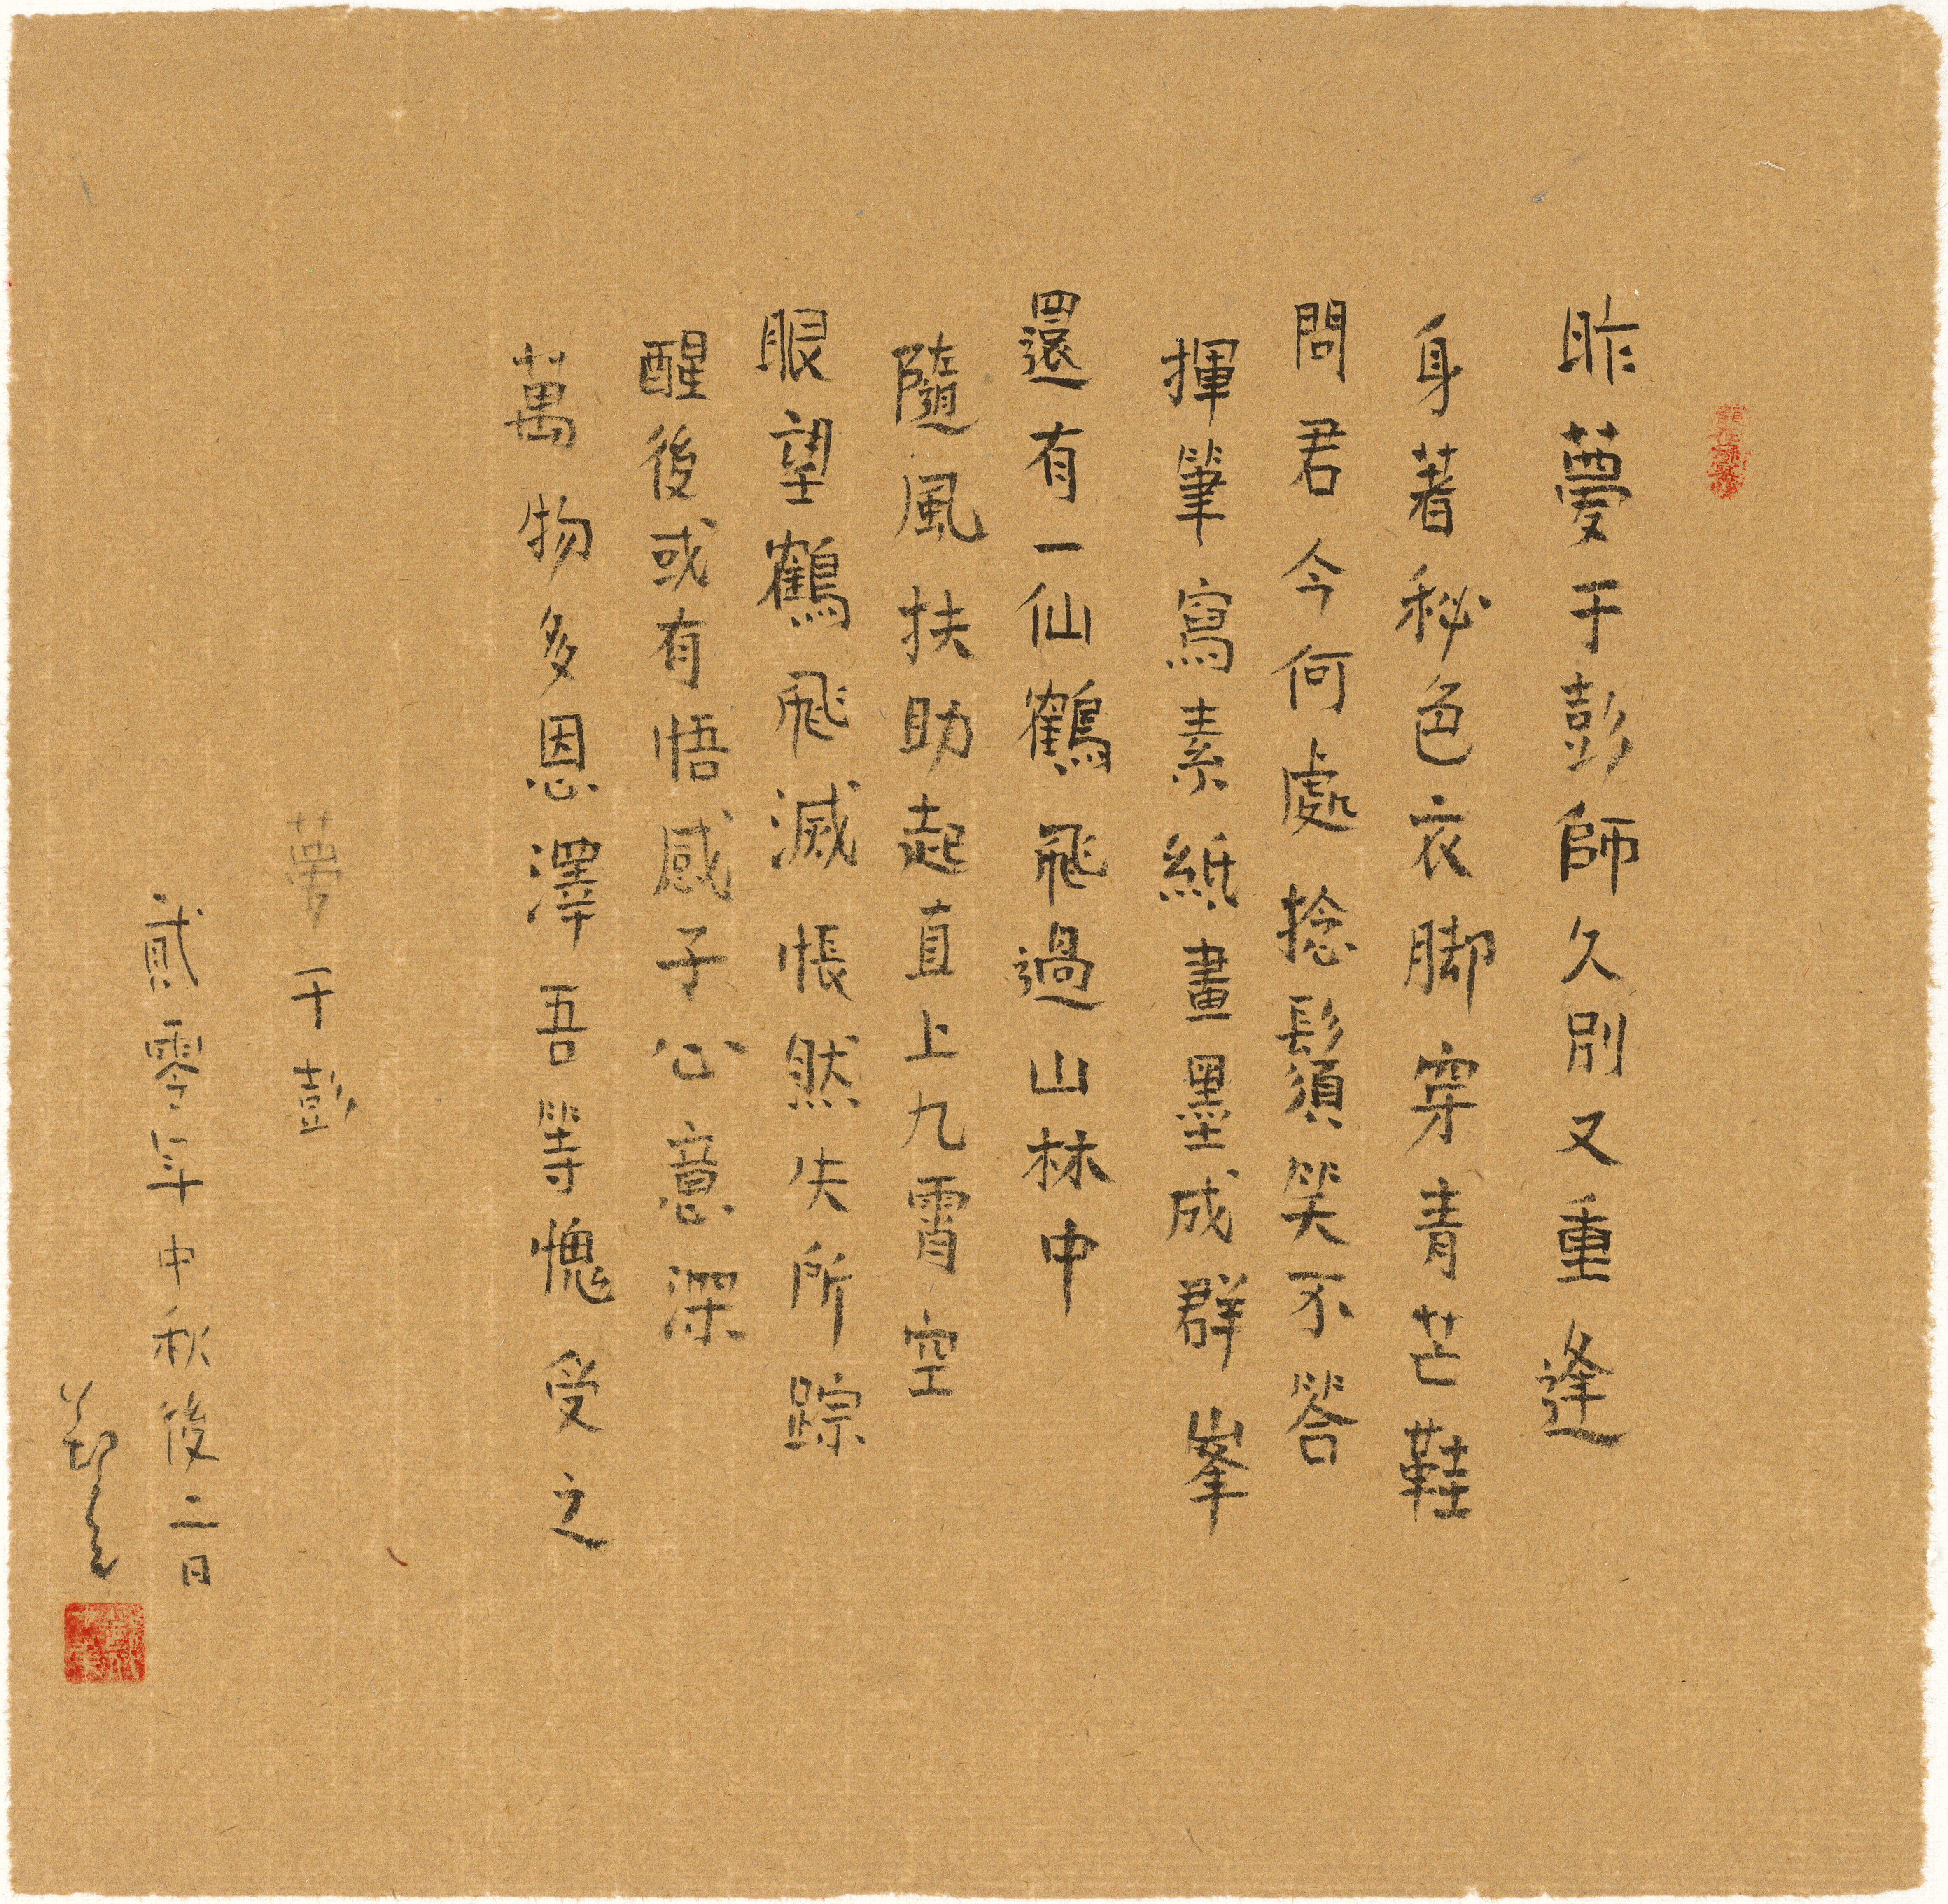 昨夢于彭師久別又重逢
身著秘色衣脚穿青芒鞋
問君今何處捻鬚笑不答
揮筆寫素紙畫墨成群峯
還有一仙鶴飛過山林中
隨風扶助起直上九霄空
眼望鶴飛滅悵然失所踪
醒後或有悟感子公意深
萬物多恩澤吾等愧受之
夢于彭
貳零年中秋後二日